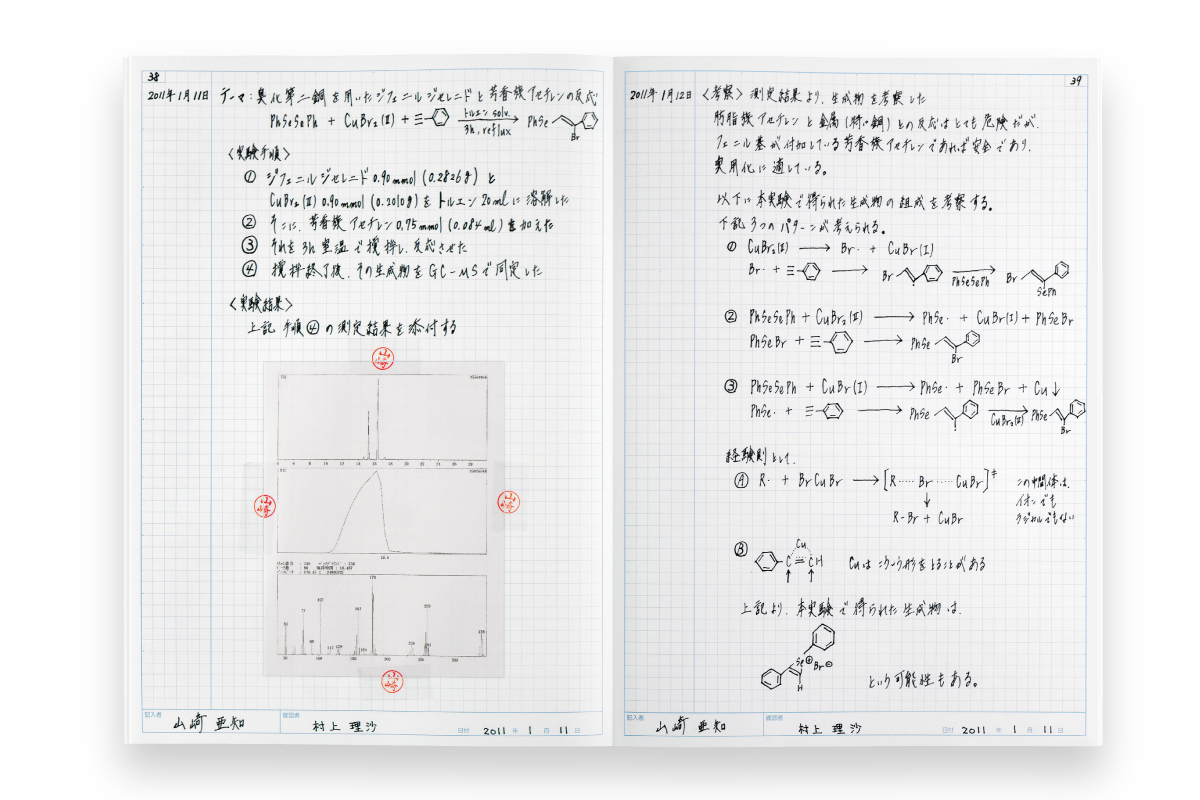 38
2011年1月11日 テーマ:臭化第二銅を用いたジフェニルジセレニドと芳香族アセチレンの反応
PhSeSePh + CuBr₂(II) + トルエン solv. 3h, reflux PhSe Br
〈実験手順〉
① ジフェニルジセレニド 0.90mmol (0.2826g) と
CuBr₂(II) 0.90mmol (0.2010g)をトルエン20mlに溶解した
② そこに、芳香族アセチレン0.75mmol (0.084ml)を加えた
③ それを3h室温で攪拌し、反応させた
④ 攪拌終了後、その生成物をGC-MSで同定した
〈実験結果〉
上記手順④の測定結果を添付する
山崎
4 6 8 10 12 14 16 18 20 22 24 26 28
山崎
山崎
16.6
178
102
77
51
山崎
記入者 山崎 亜知
確認者 村上 理沙
日付 2011年1月11日
39
2011年1月12日 〈考察〉測定結果より、生成物を考察した
脂肪族アセチレンと金属(特に銅)との反応はとても危険だが、
フェニル基が付加している芳香族アセチレンであれば安全であり、
実用化に適している。
以下に本実験で得られた生成物の組成を考察する。
下記3つのパターンが考えられる。
① CuBr₂(II) → Br· + CuBr(I)
Br· + → Br PhSeSePh Br SePh
② PhSeSePh + CuBr₂(II) → PhSe· + CuBr(I) + PhSeBr
PhSeBr + → PhSe Br
③ PhSeSePh + CuBr(I) → PhSe· + PhSeBr + Cu↓
PhSe· + → PhSe CuBr₂(II) PhSe Br
経験則として、
Ⓐ R· + BrCuBr → [R‥‥Br‥‥CuBr]‡ この中間体は、
↓ イオンでも
R-Br + CuBr ラジカルでもない
Ⓑ Cu
C≡CH Cuはこういう形をとることがある
上記より、本実験で得られた生成物は、
Se⊕ Br⊖
H
という可能性もある。
記入者 山崎 亜知
確認者 村上 理沙
日付 2011年1月11日